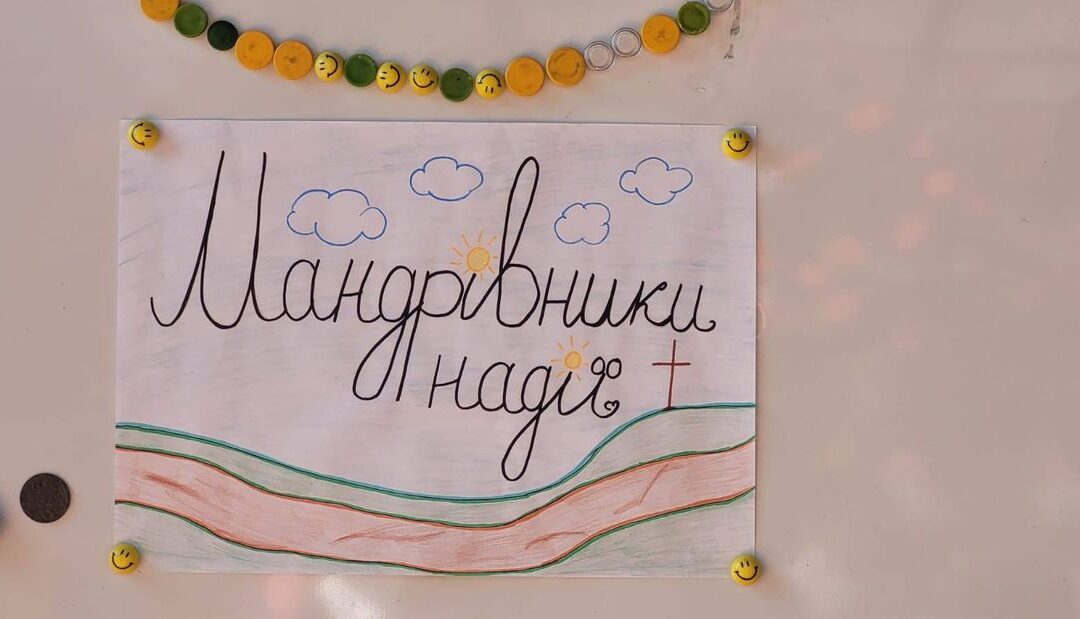 Мандрівники
надії